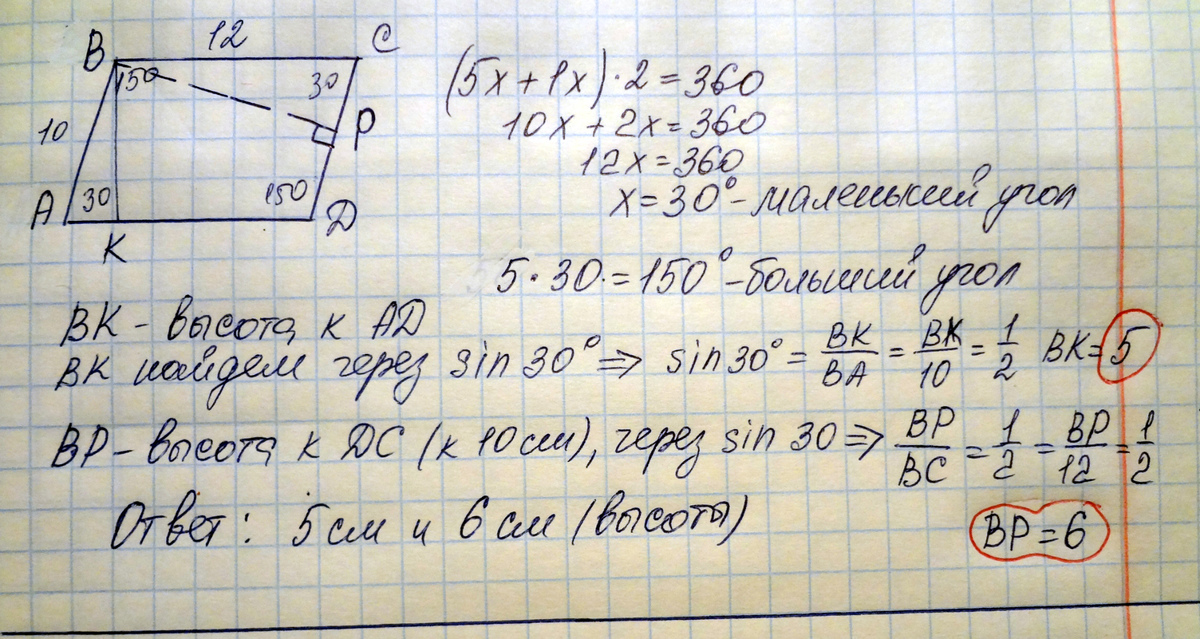 12
B
C
150
30
10
P
A
30
150
D
K
(5x + 1x) · 2 = 360
10x + 2x = 360
12x = 360
x = 30° - маленький угол
5 · 30 = 150° - больший угол
BK - высота к AD
BK найдем через sin 30° ⇒ sin 30° = BK/BA = BK/10 = 1/2 BK = 5
BP - высота к DC (к 10 см), через sin 30 ⇒ BP/BC = 1/2 = BP/12 = 1/2
Ответ: 5 см и 6 см (высоты)
BP = 6